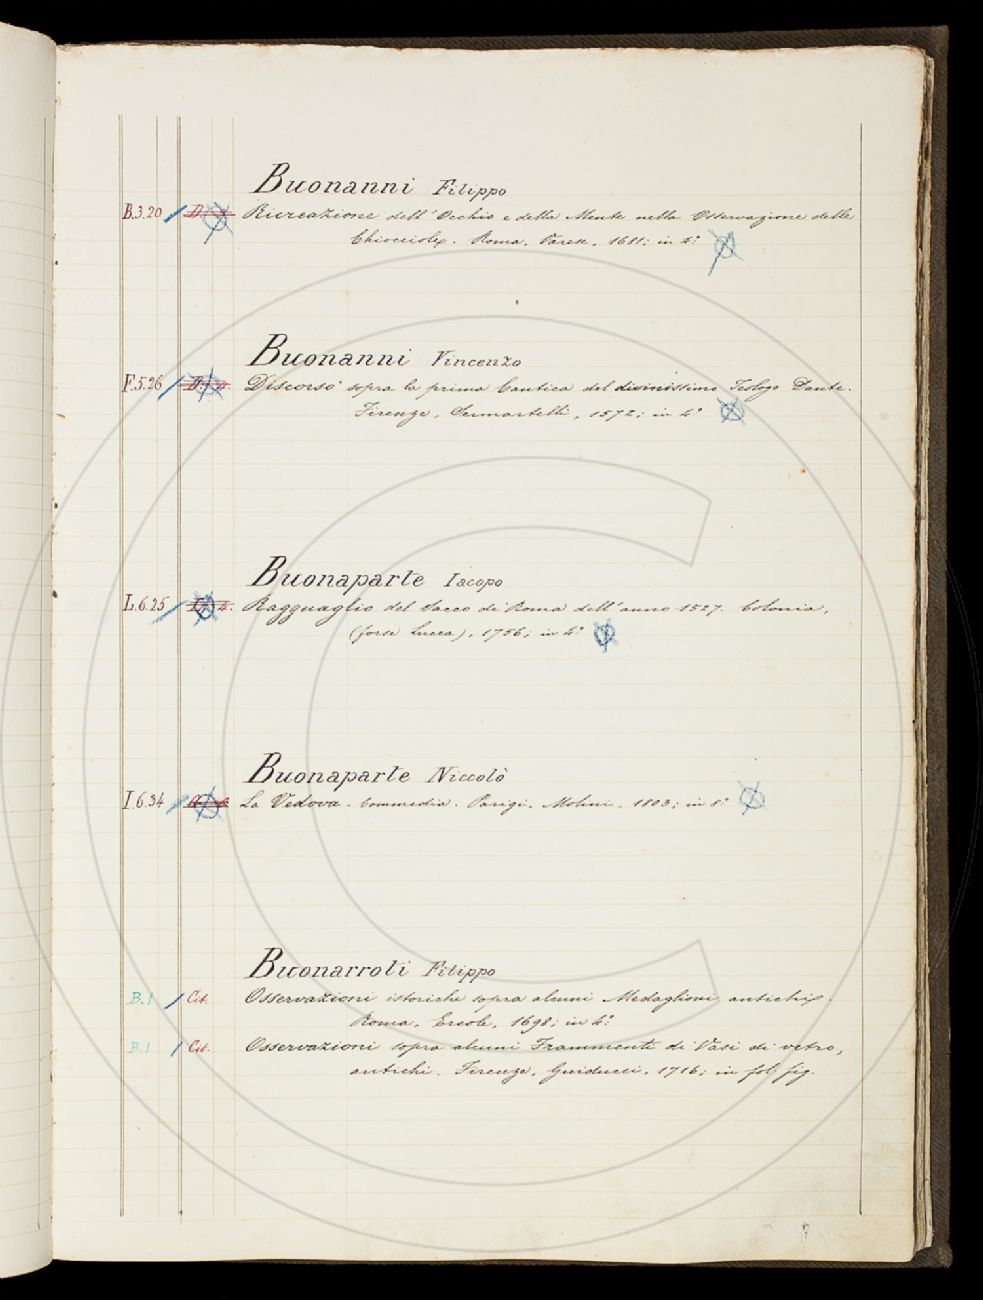 Buonanni Filippo
B.3.20 Ricreazione dell'Occhio e della Mente nella Osservazione delle
Chiocciole. Roma, Varese, 1681; in 4.º
Buonanni Vincenzo
F.5.26 Discorso sopra la prima Cantica del divinissimo Teologo Dante.
Firenze, Sermartelli, 1572; in 4.º
Buonaparte Iacopo
L.6.25 Ragguaglio del Sacco di Roma dell'anno 1527. Colonia,
(forse Lucca), 1756; in 4.º
Buonaparte Niccolò
I.6.34 La Vedova. Commedia. Parigi, Molini, 1803; in 8.º
Buonarroti Filippo
B.1 Cit. Osservazioni istoriche sopra alcuni Medaglioni antichi.
Roma, Ercole, 1698; in 4.º
B.1 Cit. Osservazioni sopra alcuni Frammenti di Vasi di vetro,
antichi. Firenze, Guiducci, 1716; in fol. fig.